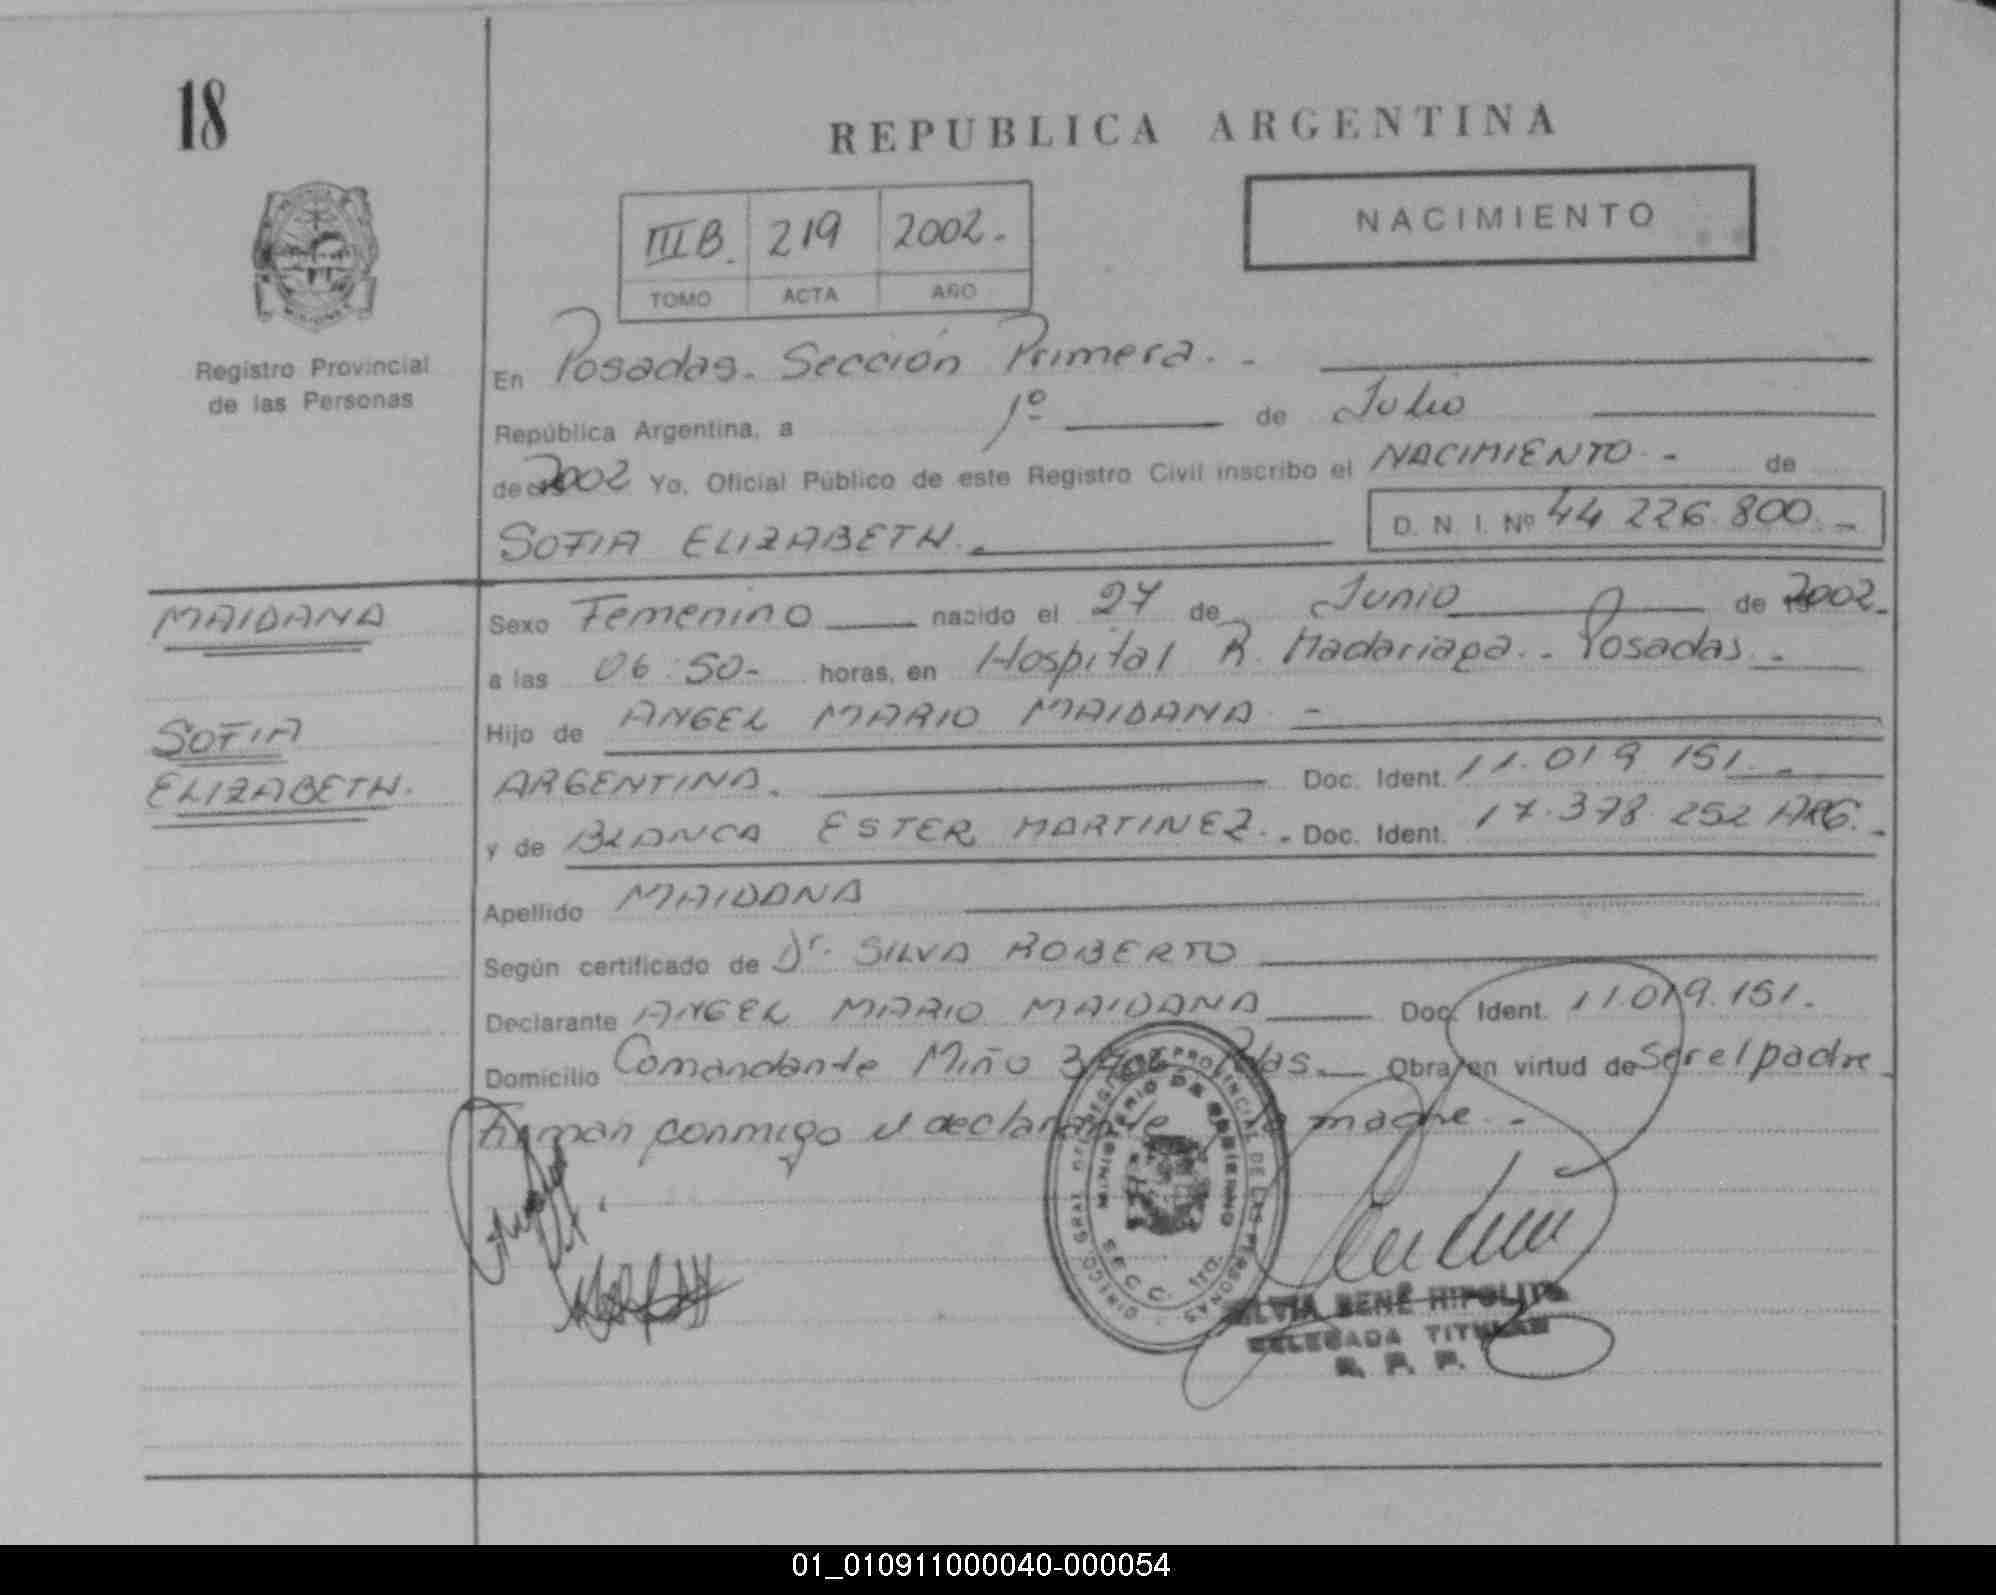 18
REPUBLICA ARGENTINA
NACIMIENTO
III B. 219 2002.
TOMO ACTA AÑO
Registro Provincial
de las Personas
En Posadas. Sección Primera. -
República Argentina, a 1º de Julio
de 2002 Yo, Oficial Público de este Registro Civil inscribo el NACIMIENTO - de
SOFIA ELIZABETH. D. N. I. Nº 44 226.800. -
MAIDANA
SOFIA
ELIZABETH.
Sexo Femenino nacido el 27 de Junio de 2002.
a las 06:50- horas, en Hospital R. Madariaga. - Posadas. -
Hijo de ANGEL MARIO MAIDANA -
ARGENTINA. Doc. Ident. 11.019 151. -
y de BLANCA ESTER MARTINEZ. - Doc. Ident. 17.378.252 ARG. -
Apellido MAIDANA
Según certificado de Dr. SILVA ROBERTO
Declarante ANGEL MARIO MAIDANA Doc. Ident. 11.019.151.
Domicilio Comandante Miño Pdas. Obra en virtud de Ser el padre
Firman conmigo el declarante y la madre. -
DIREC. GRAL. DEL REGISTRO PROVINCIAL DE LAS PERSONAS
MINISTERIO DE GOBIERNO
SECC. 1ra.
SILVIA RENÉ HIPOLITO
DELEGADA TITULAR
R. P. P.
01_010911000040-000054